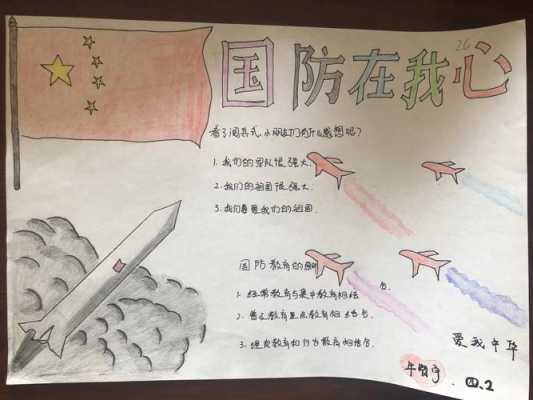 国防在我心
26
看了阅兵式,小朋友们有什么感想呢?
1.我们的军队很强大.
2.我们的祖国很强大.
3.我们要爱我们的祖国.
国防教育的原则
1.经常教育与集中教育相结合.
2.普及教育重点教育相结合.
3.理论教育和行为教育相结合.
爱我中华
四.2